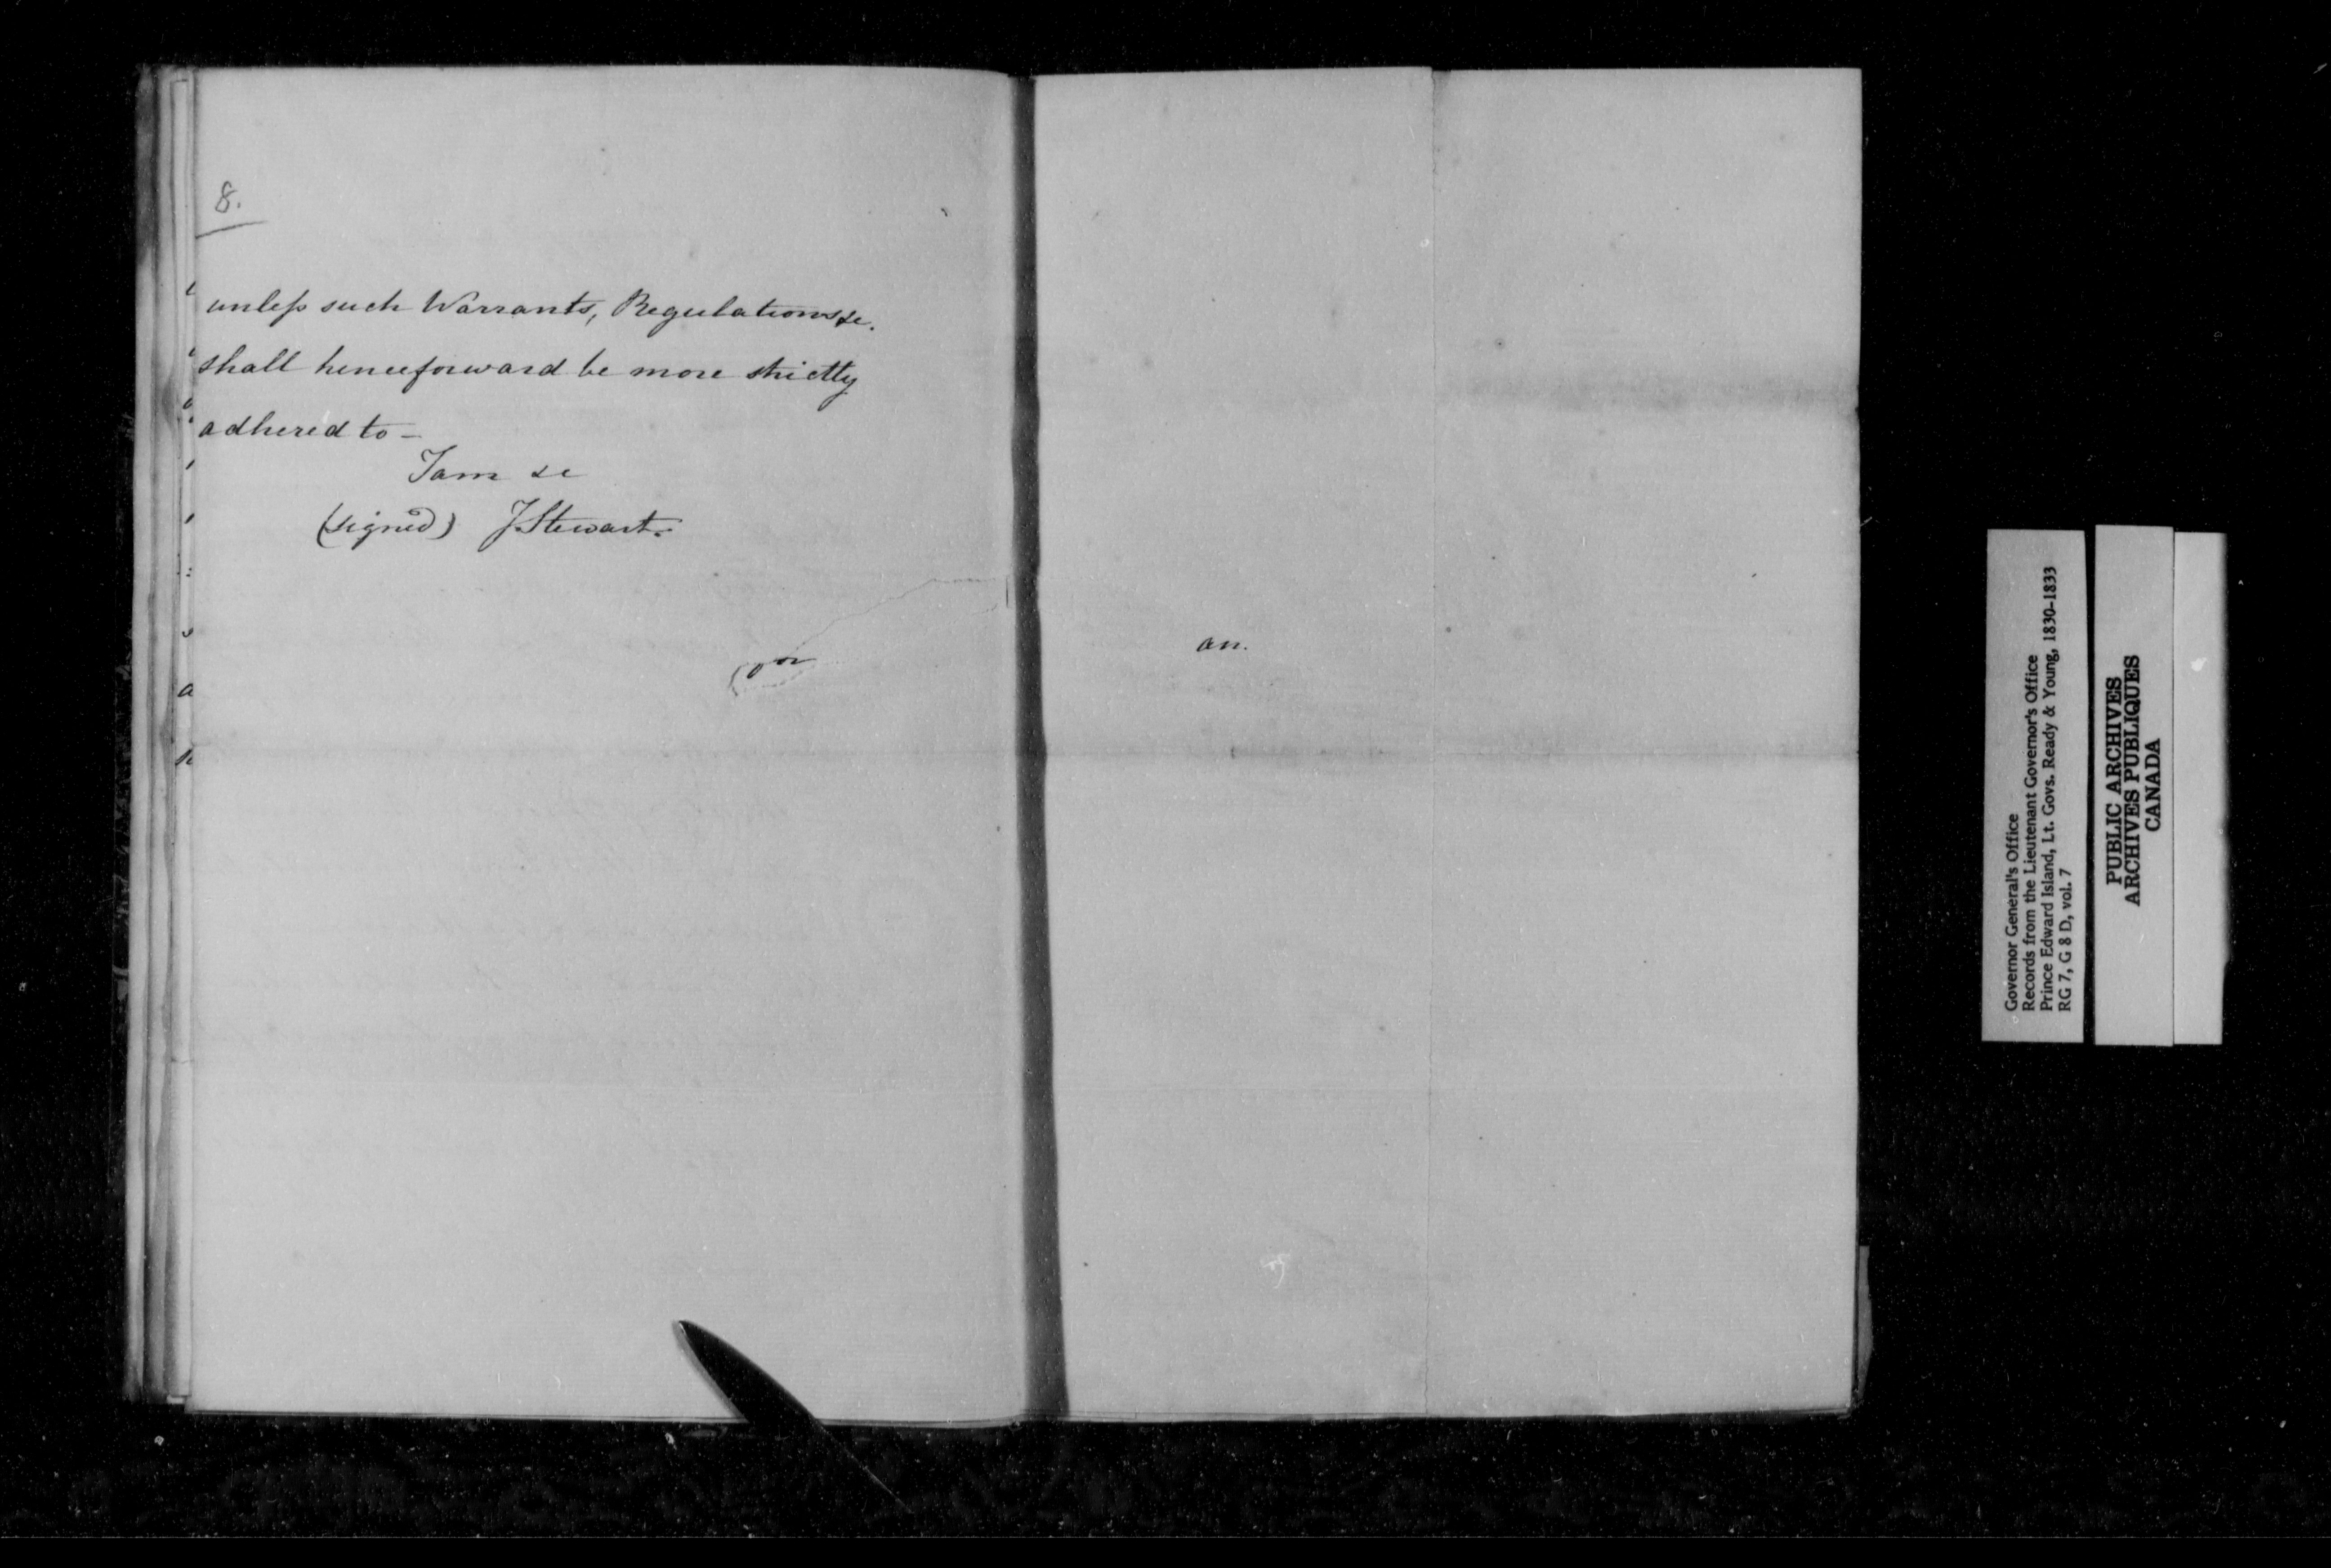 8.
unless such Warrants, Regulations &c.
shall henceforward be more strictly
adhered to —
I am &c
(signed) J. Stewart.
an.
Governor General's Office
Records from the Lieutenant Governor's Office
Prince Edward Island, Lt. Govs. Ready & Young, 1830-1833
RG 7, G 8 D, vol. 7
PUBLIC ARCHIVES
ARCHIVES PUBLIQUES
CANADA